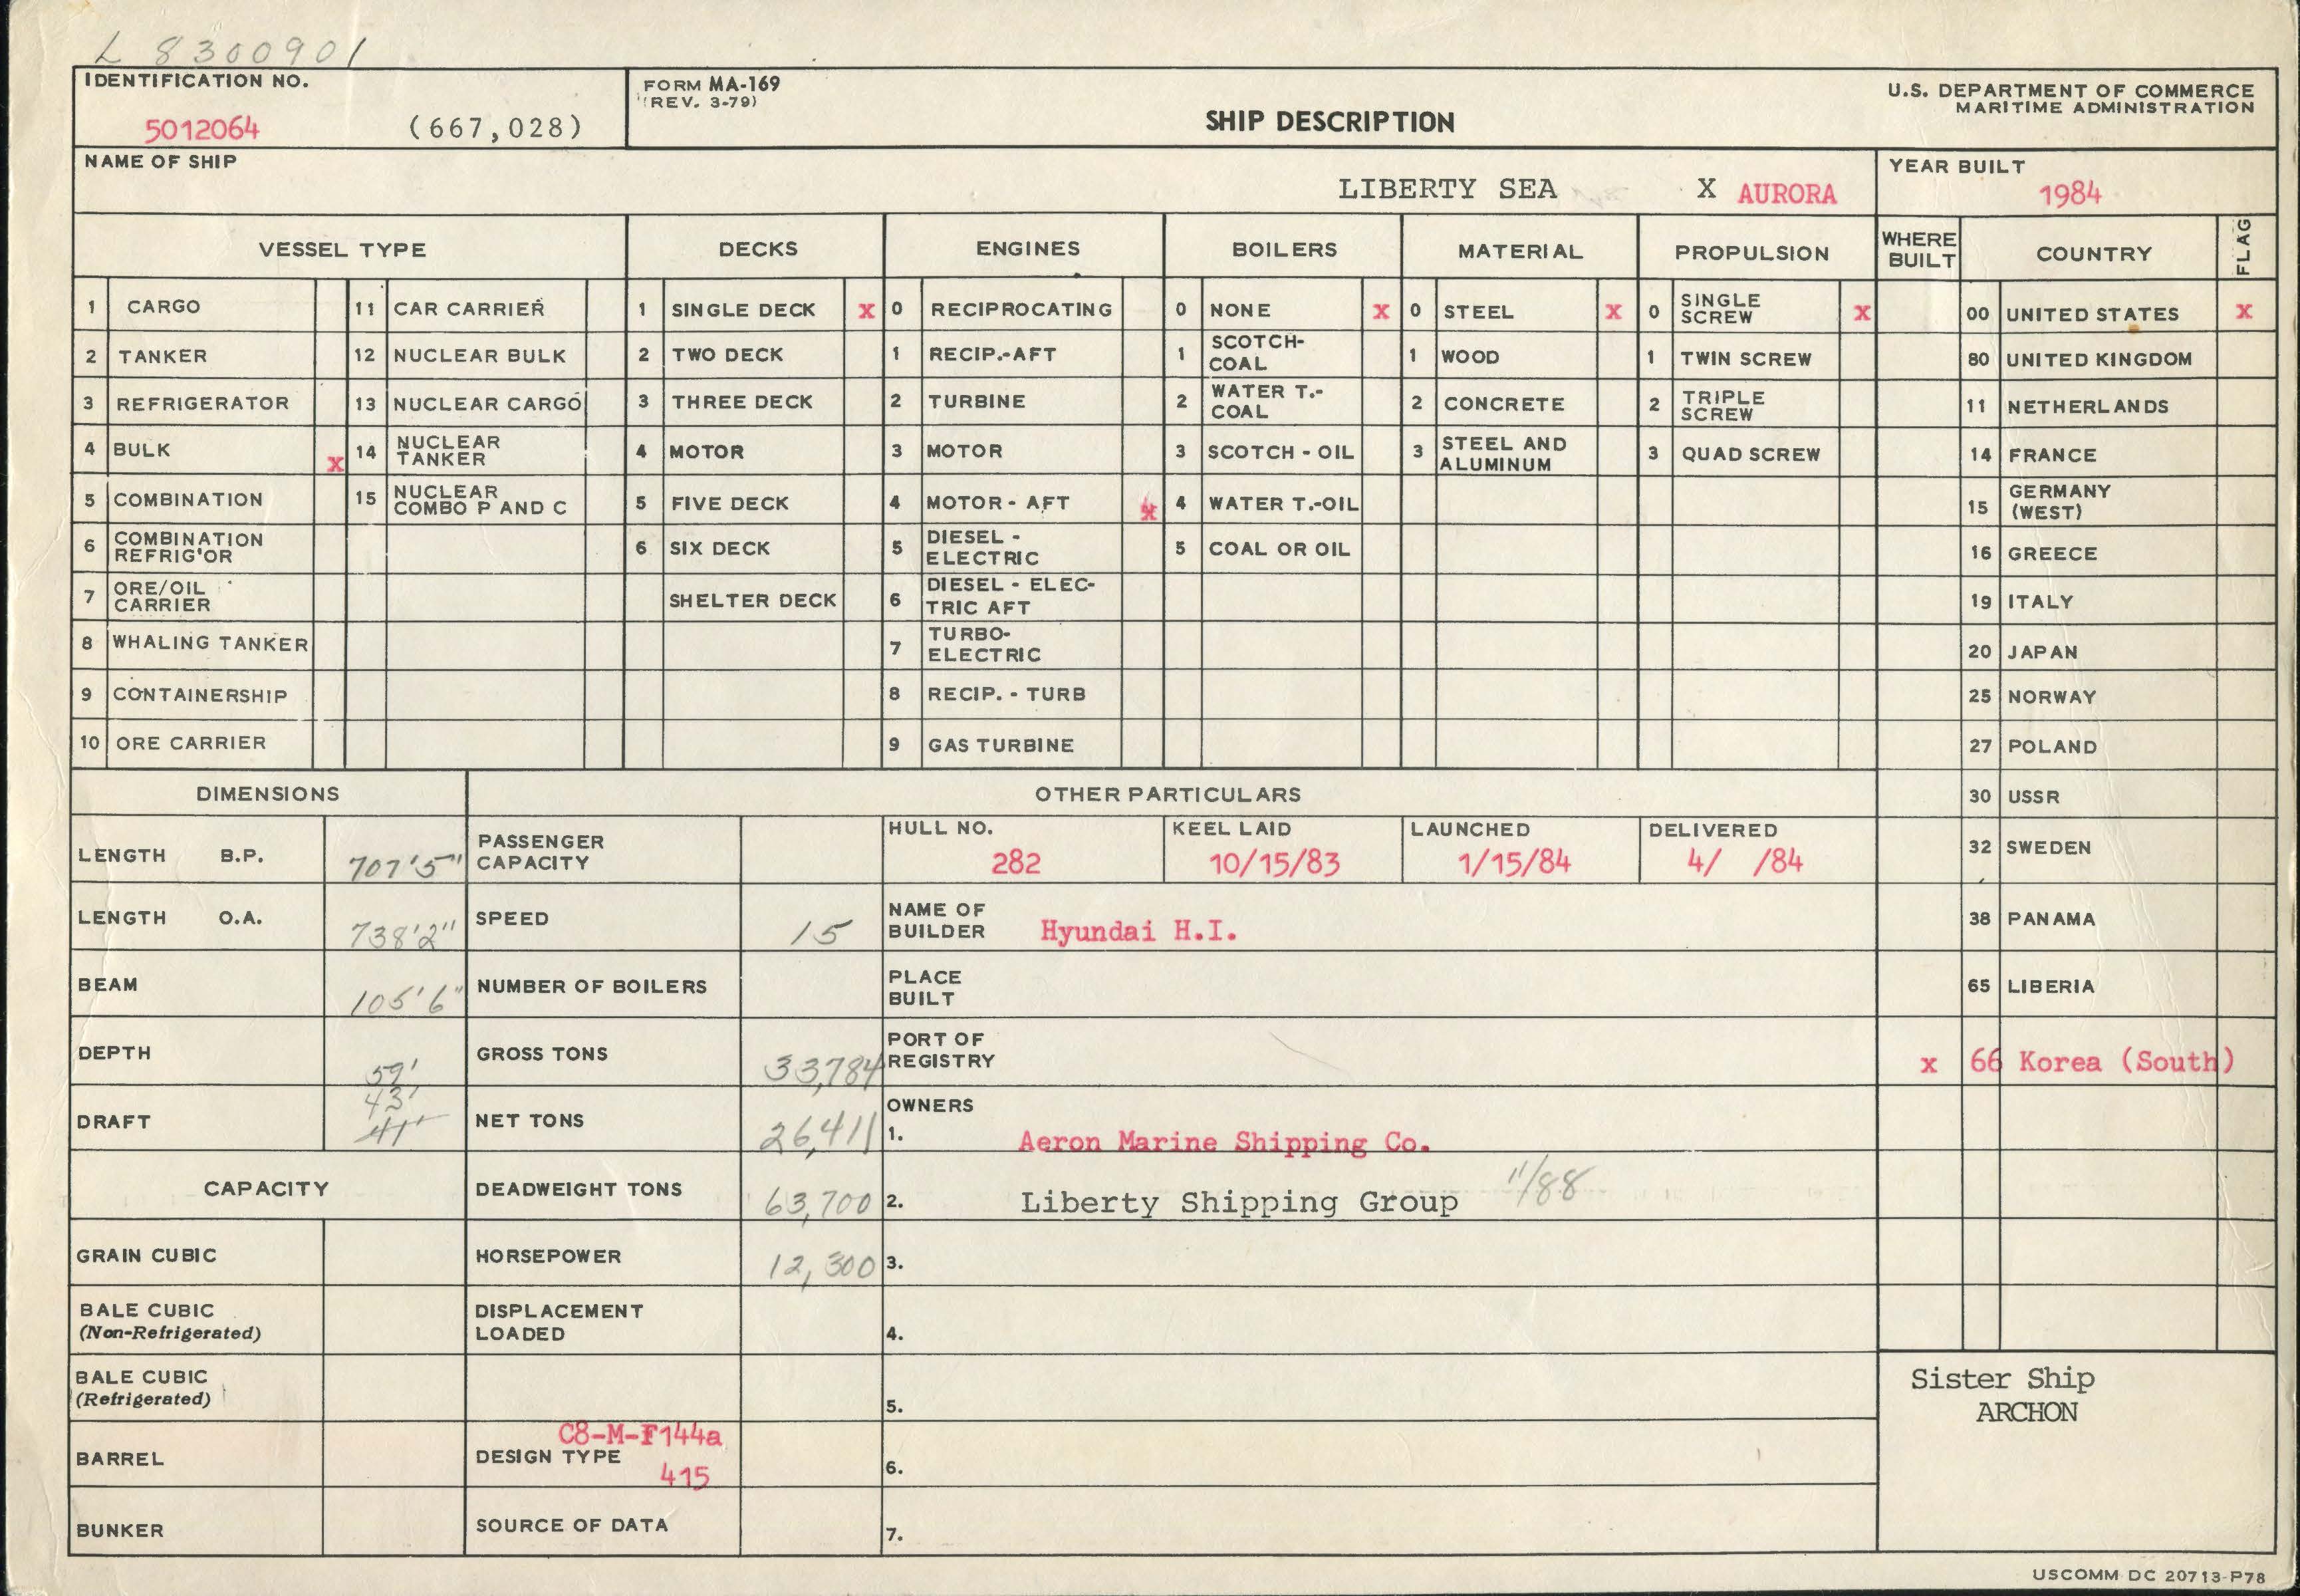 L 8300901
IDENTIFICATION NO.
5012064 (667,028)
FORM MA-169
(REV. 3-79)
SHIP DESCRIPTION
U.S. DEPARTMENT OF COMMERCE
MARITIME ADMINISTRATION
NAME OF SHIP
LIBERTY SEA X AURORA
YEAR BUILT
1984
VESSEL TYPE DECKS ENGINES BOILERS MATERIAL PROPULSION WHERE BUILT COUNTRY FLAG
1 CARGO 11 CAR CARRIER 1 SINGLE DECK x 0 RECIPROCATING 0 NONE x 0 STEEL x 0 SINGLE SCREW x 00 UNITED STATES x
2 TANKER 12 NUCLEAR BULK 2 TWO DECK 1 RECIP.-AFT 1 SCOTCH-COAL 1 WOOD 1 TWIN SCREW 80 UNITED KINGDOM
3 REFRIGERATOR 13 NUCLEAR CARGO 3 THREE DECK 2 TURBINE 2 WATER T.-COAL 2 CONCRETE 2 TRIPLE SCREW 11 NETHERLANDS
4 BULK x 14 NUCLEAR TANKER 4 MOTOR 3 MOTOR 3 SCOTCH - OIL 3 STEEL AND ALUMINUM 3 QUAD SCREW 14 FRANCE
5 COMBINATION 15 NUCLEAR COMBO P AND C 5 FIVE DECK 4 MOTOR - AFT x 4 WATER T.-OIL 15 GERMANY (WEST)
6 COMBINATION REFRIG'OR 6 SIX DECK 5 DIESEL - ELECTRIC 5 COAL OR OIL 16 GREECE
7 ORE/OIL CARRIER SHELTER DECK 6 DIESEL - ELEC-TRIC AFT 19 ITALY
8 WHALING TANKER 7 TURBO-ELECTRIC 20 JAPAN
9 CONTAINERSHIP 8 RECIP. - TURB 25 NORWAY
10 ORE CARRIER 9 GAS TURBINE 27 POLAND
DIMENSIONS OTHER PARTICULARS 30 USSR
LENGTH B.P. 707'5" PASSENGER CAPACITY HULL NO. 282 KEEL LAID 10/15/83 LAUNCHED 1/15/84 DELIVERED 4/ /84 32 SWEDEN
LENGTH O.A. 738'2" SPEED 15 NAME OF BUILDER Hyundai H.I. 38 PANAMA
BEAM 105'6" NUMBER OF BOILERS PLACE BUILT 65 LIBERIA
DEPTH 59' GROSS TONS 33,784 PORT OF REGISTRY x 66 Korea (South)
DRAFT 43' 41' NET TONS 26,411 OWNERS
1. Aeron Marine Shipping Co.
CAPACITY DEADWEIGHT TONS 63,700 2. Liberty Shipping Group 11/88
GRAIN CUBIC HORSEPOWER 12,300 3.
BALE CUBIC (Non-Refrigerated) DISPLACEMENT LOADED 4.
BALE CUBIC (Refrigerated) 5.
Sister Ship
ARCHON
BARREL DESIGN TYPE C8-M-F144a 415 6.
BUNKER SOURCE OF DATA 7.
USCOMM DC 20713-P78